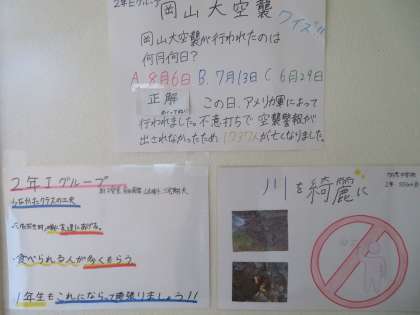 2年Eグループ
岡山大空襲
クイズ!!
岡山大空襲が行われたのは
何月何日?
A.8月6日 B.7月13日 C.6月29日
正解
この日、アメリカ軍によって
行われました。不意打ちで空襲警報が
出されなかったため1737人が亡くなりました。
2年Iグループ
・食べられる人が多くもらう
1年生もこれにならって頑張りましょう!!
川を綺麗に